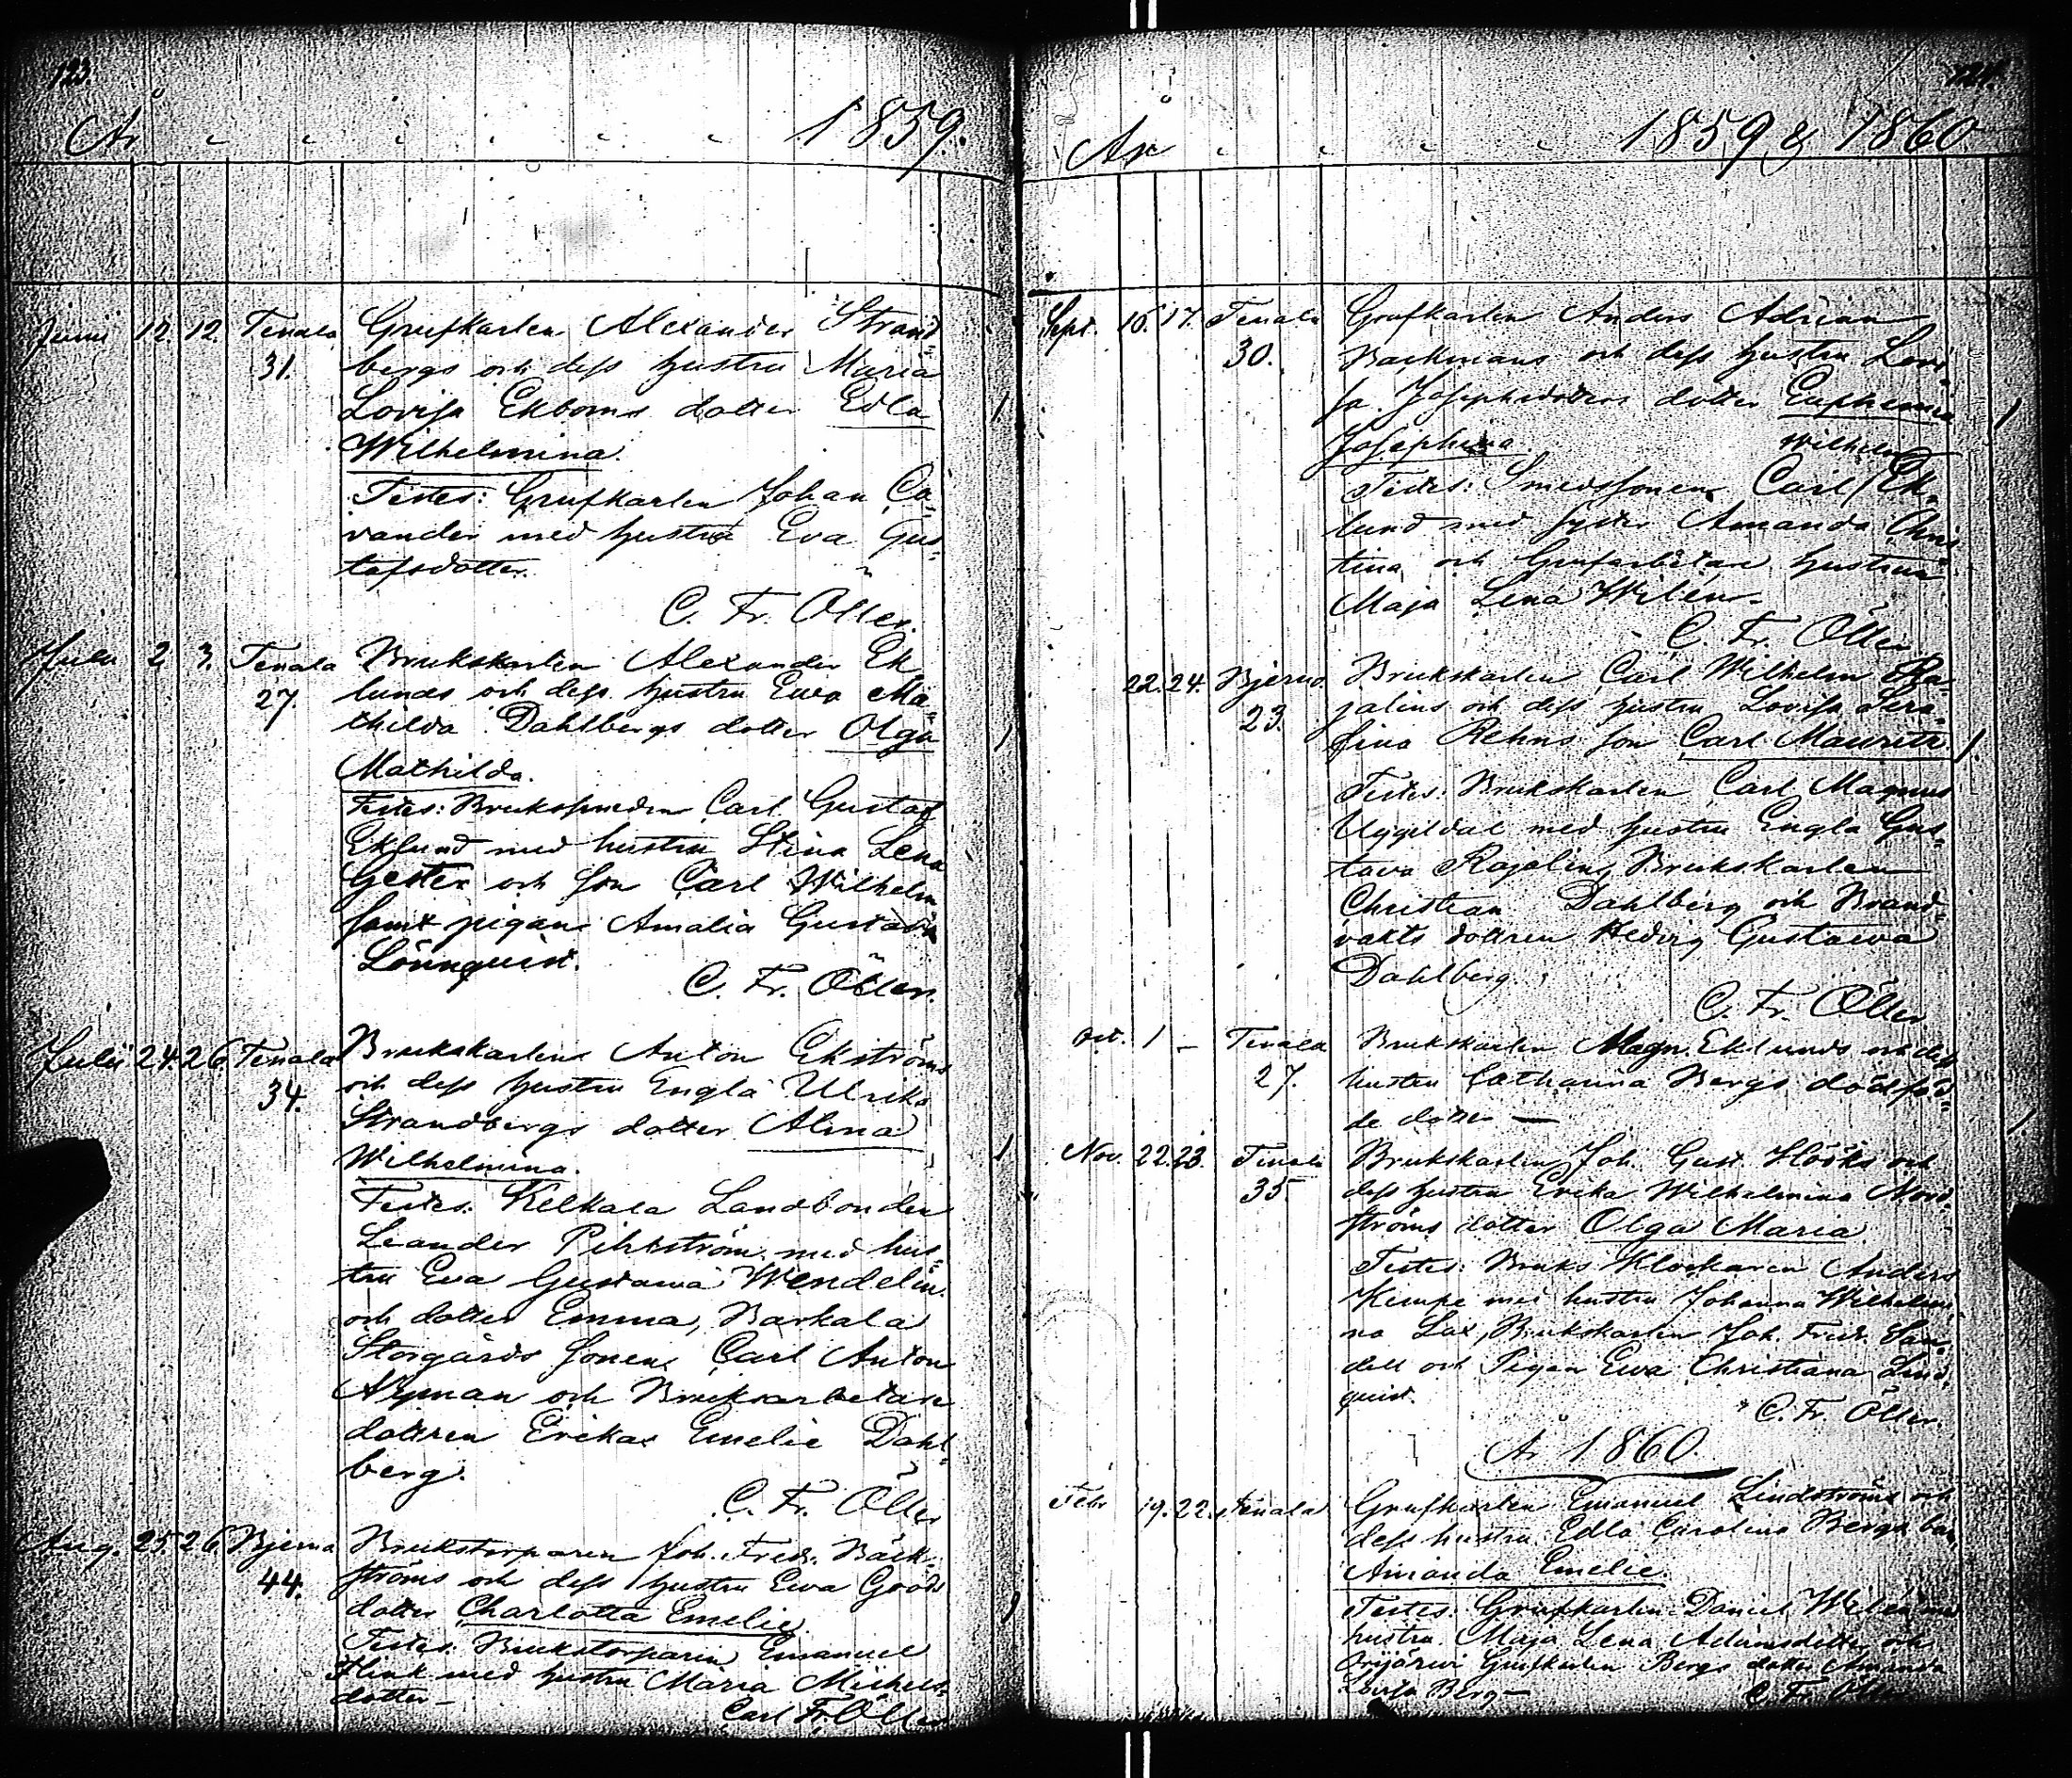 123.
År 1859.
Juni 12. 12. Tenala Grufkarlen Alexander Strand-
31. bergs och dess hustru Maria
Lovisa Ekboms dotter Edla
Wilhelmina.
Testes: Grufkarlen Johan Ca-
vander med hustru Eva Gus-
tafsdotter.
C. Fr. Öller.
Julii 2 3. Tenala Brukskarlen Alexander Ek
27. lunds och dess hustru Ewa Ma-
thilda Dahlbergs dotter Olga
Mathilda.
Testes: Brukssmeden Carl Gustaf
Eklund med hustru Stina Lena
Gester och son Carl Wilhelm
samt pigan Amalia Gustava
Lönnquist.
C. Fr. Öller.
Julii 24. 26. Tenala Brukskarlen Anton Ekströms
34. och dess hustru Engla Ulrika
Strandbergs dotter Alma
Wilhelmina.
Testes: Kelkala Landbonden
Leander Pihlström med hus-
tru Eva Gustawa Wendelin
och dotter Emma, Barkala
Storgårds sonen Carl Anton
Nyman och Bruksarbetare
dottren Erika Emelie Dahl-
berg.
C. Fr. Öller
Aug. 25. 26. Bjerna Brukstorparen Joh. Fredr. Bäck-
44. ströms och dess hustru Ewa Gööds
dotter Charlotta Emelie.
Testes: Brukstorparen Emanuel
Flink med hustru Maria Michels-
dotter –
Carl Fr. Öller
124.
År 1859 & 1860
Sept. 16. 17. Tenala Grufkarlen Anders Adrian
30. Backmans och dess hustru Lovi-
sa Josephsdotters dotter Euphemia
Josephina.
Wilhelm
Testes: Smedssonen Carl Ek-
lund med syster Amanda Chris
tina och Grufarbetare hustrun
Maja Lena Wilén.
C. Fr. Öller
22. 24. Bjerno Brukskarlen Carl Wilhelm Ra-
23. jalins och dess hustru Lovisa Sera-
fina Rehns son Carl Mauritz.
Testes: Brukskarlen Carl Magnus
Uggeldal med hustru Engla Gus-
tava Rajalin, Brukskarlen
Christian Dahlberg och Brand-
vakts dottren Hedvig Gustawa
Dahlberg.
C. Fr. Öller
Oct. 1 – Tenala Brukskarlen Magn. Eklunds och dess
27. hustru Catharina Bergs dödföd-
de dotter —
Nov. 22. 23. Tenala Brukskarlen Joh. Gust. Hööks och
35 dess hustru Erika Wilhelmina Nord-
ströms dotter Olga Maria.
Testes: Bruks Klockaren Anders
Kempe med hustru Johanna Wilhelmi-
na Lax, Brukskarlen Joh. Fredr. San-
dell och Pigan Ewa Christiana Lind-
quist.
C. Fr. Öller.
År 1860.
Febr 19. 22. Tenala Grufkarlen Emanuel Lindströms och
dess hustru Edla Carolina Bergs barn
Amanda Emelie.
Testes: Grufkarlen Daniel Wilén med
hustru Maja Lena Adamsdotter och
Grufkarlen Bergs dotter Amanda
Lovisa Berg –
C. Fr. Öller